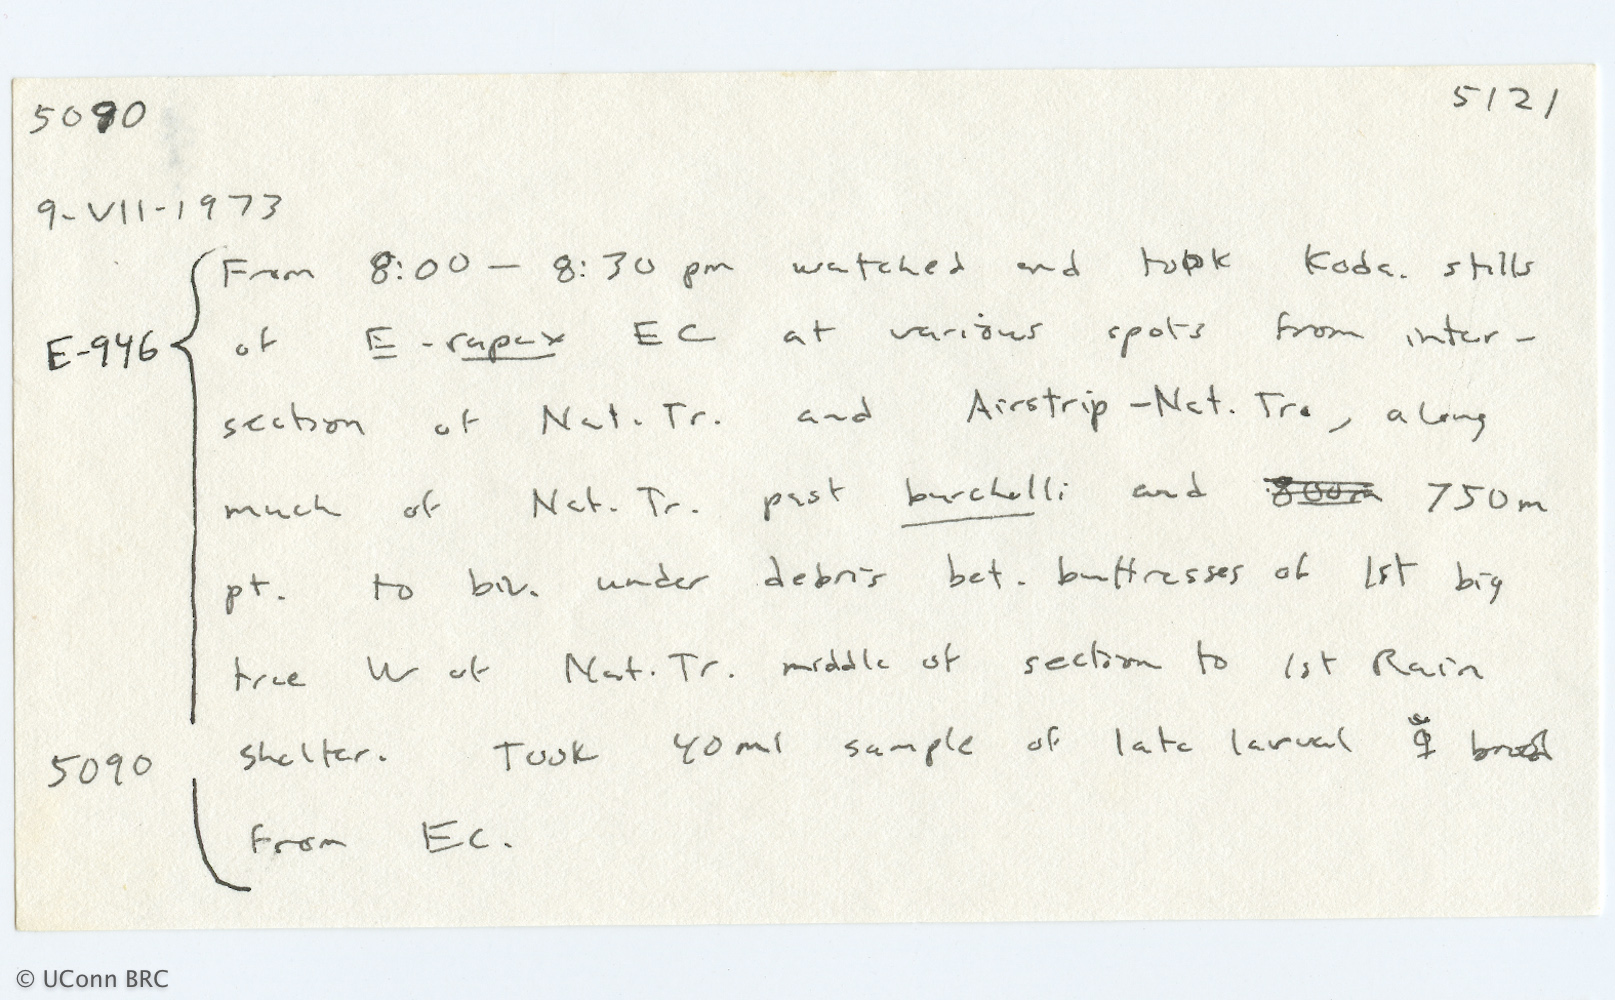 5090
5121
9-VII-1973
From 8:00 - 8:30 pm watched and took Koda. stills
E-946
of E-rapax EC at various spots from inter-
section of Nat. Tr. and Airstrip-Nat. Tr., along
much of Nat. Tr. past burchelli and 800m 750m
pt. to biv. under debris bet. buttresses of 1st big
tree W of Nat. Tr. middle of section to 1st Rain
5090
shelter. Took 40ml sample of late larval ☿ brood
from EC.
© UConn BRC